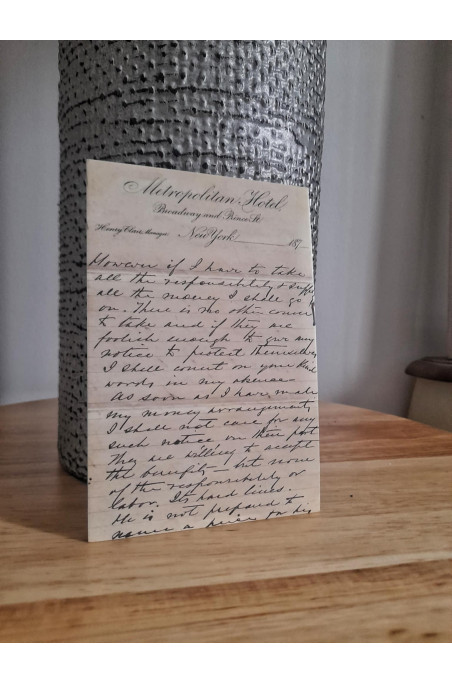 Metropolitan Hotel,
Broadway and Prince St.
Henry Clair, Manager. New York 187
However if I have to take
all the responsibility & suffer
all the money I shall go
on. There is no other course
to take and if they are
foolish enough to give any
notice to protect themselves
I shall count on your kind
words in my absence.
As soon as I have made
my money arrangements
I shall not care for any
such notice on their part
They are willing to accept
the benefits — but none
of the responsibility or
labor. Its hard lines.
He is not prepared to
name a price for his